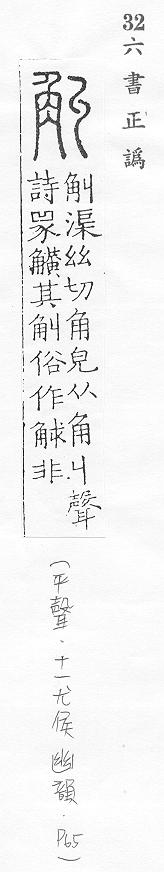 32 六書正譌
觓
觓渠𢆶切角皃从角丩聲
詩兕觵其觓俗作觩非
(平聲．十一尤侯幽韻．P65)